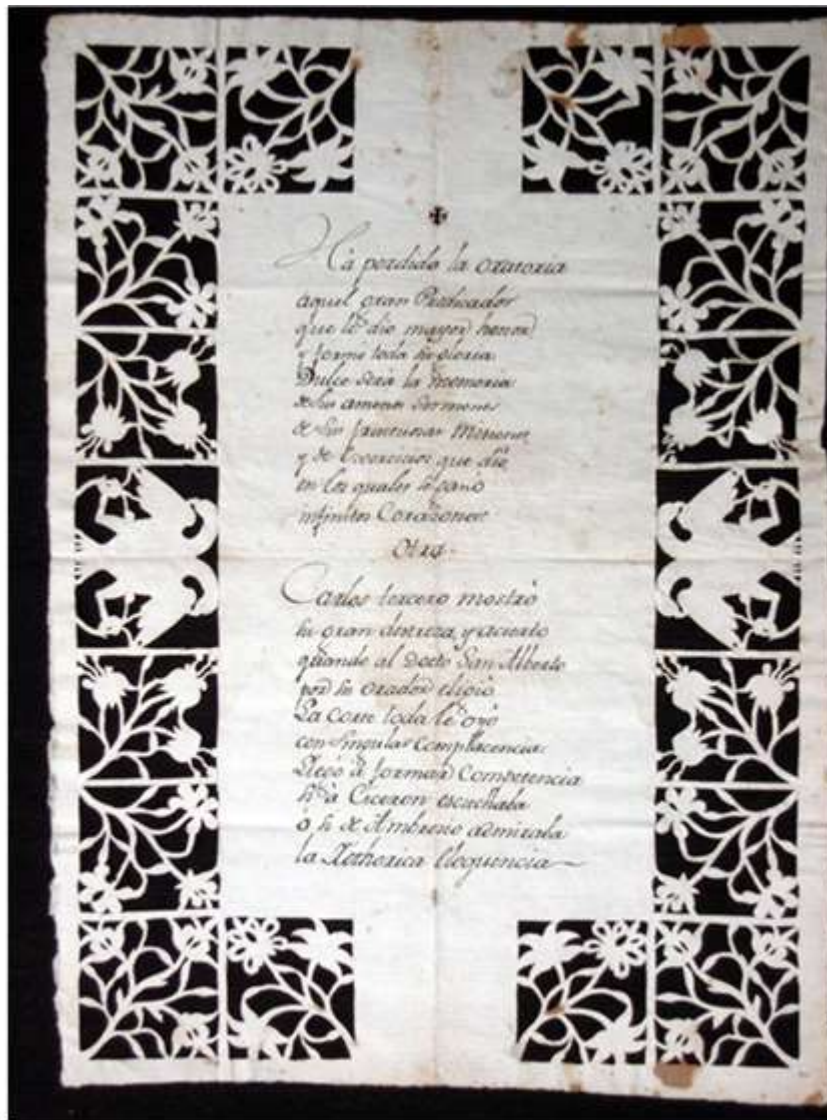 Ha perdido la oratoria
aquel gran Predicador
que le dio mayor honor
y formò toda su gloria.
Dulce serà la memoria
de sus amenos sermones
de sus fructuosas Misiones
y de Exercicios que diò
en los quales
infinitos Corazones
Otra.
Carlos tercero mostrò
su gran destreza, y acierto
quando al Docto San Alberto
por su orador eligiò
La corte toda le oyò
con singular complacencia:
Llegò à formar competencia
à Ciceron escuchaba
o si de Ambrosio admiraba
la Rethorica eloquencia